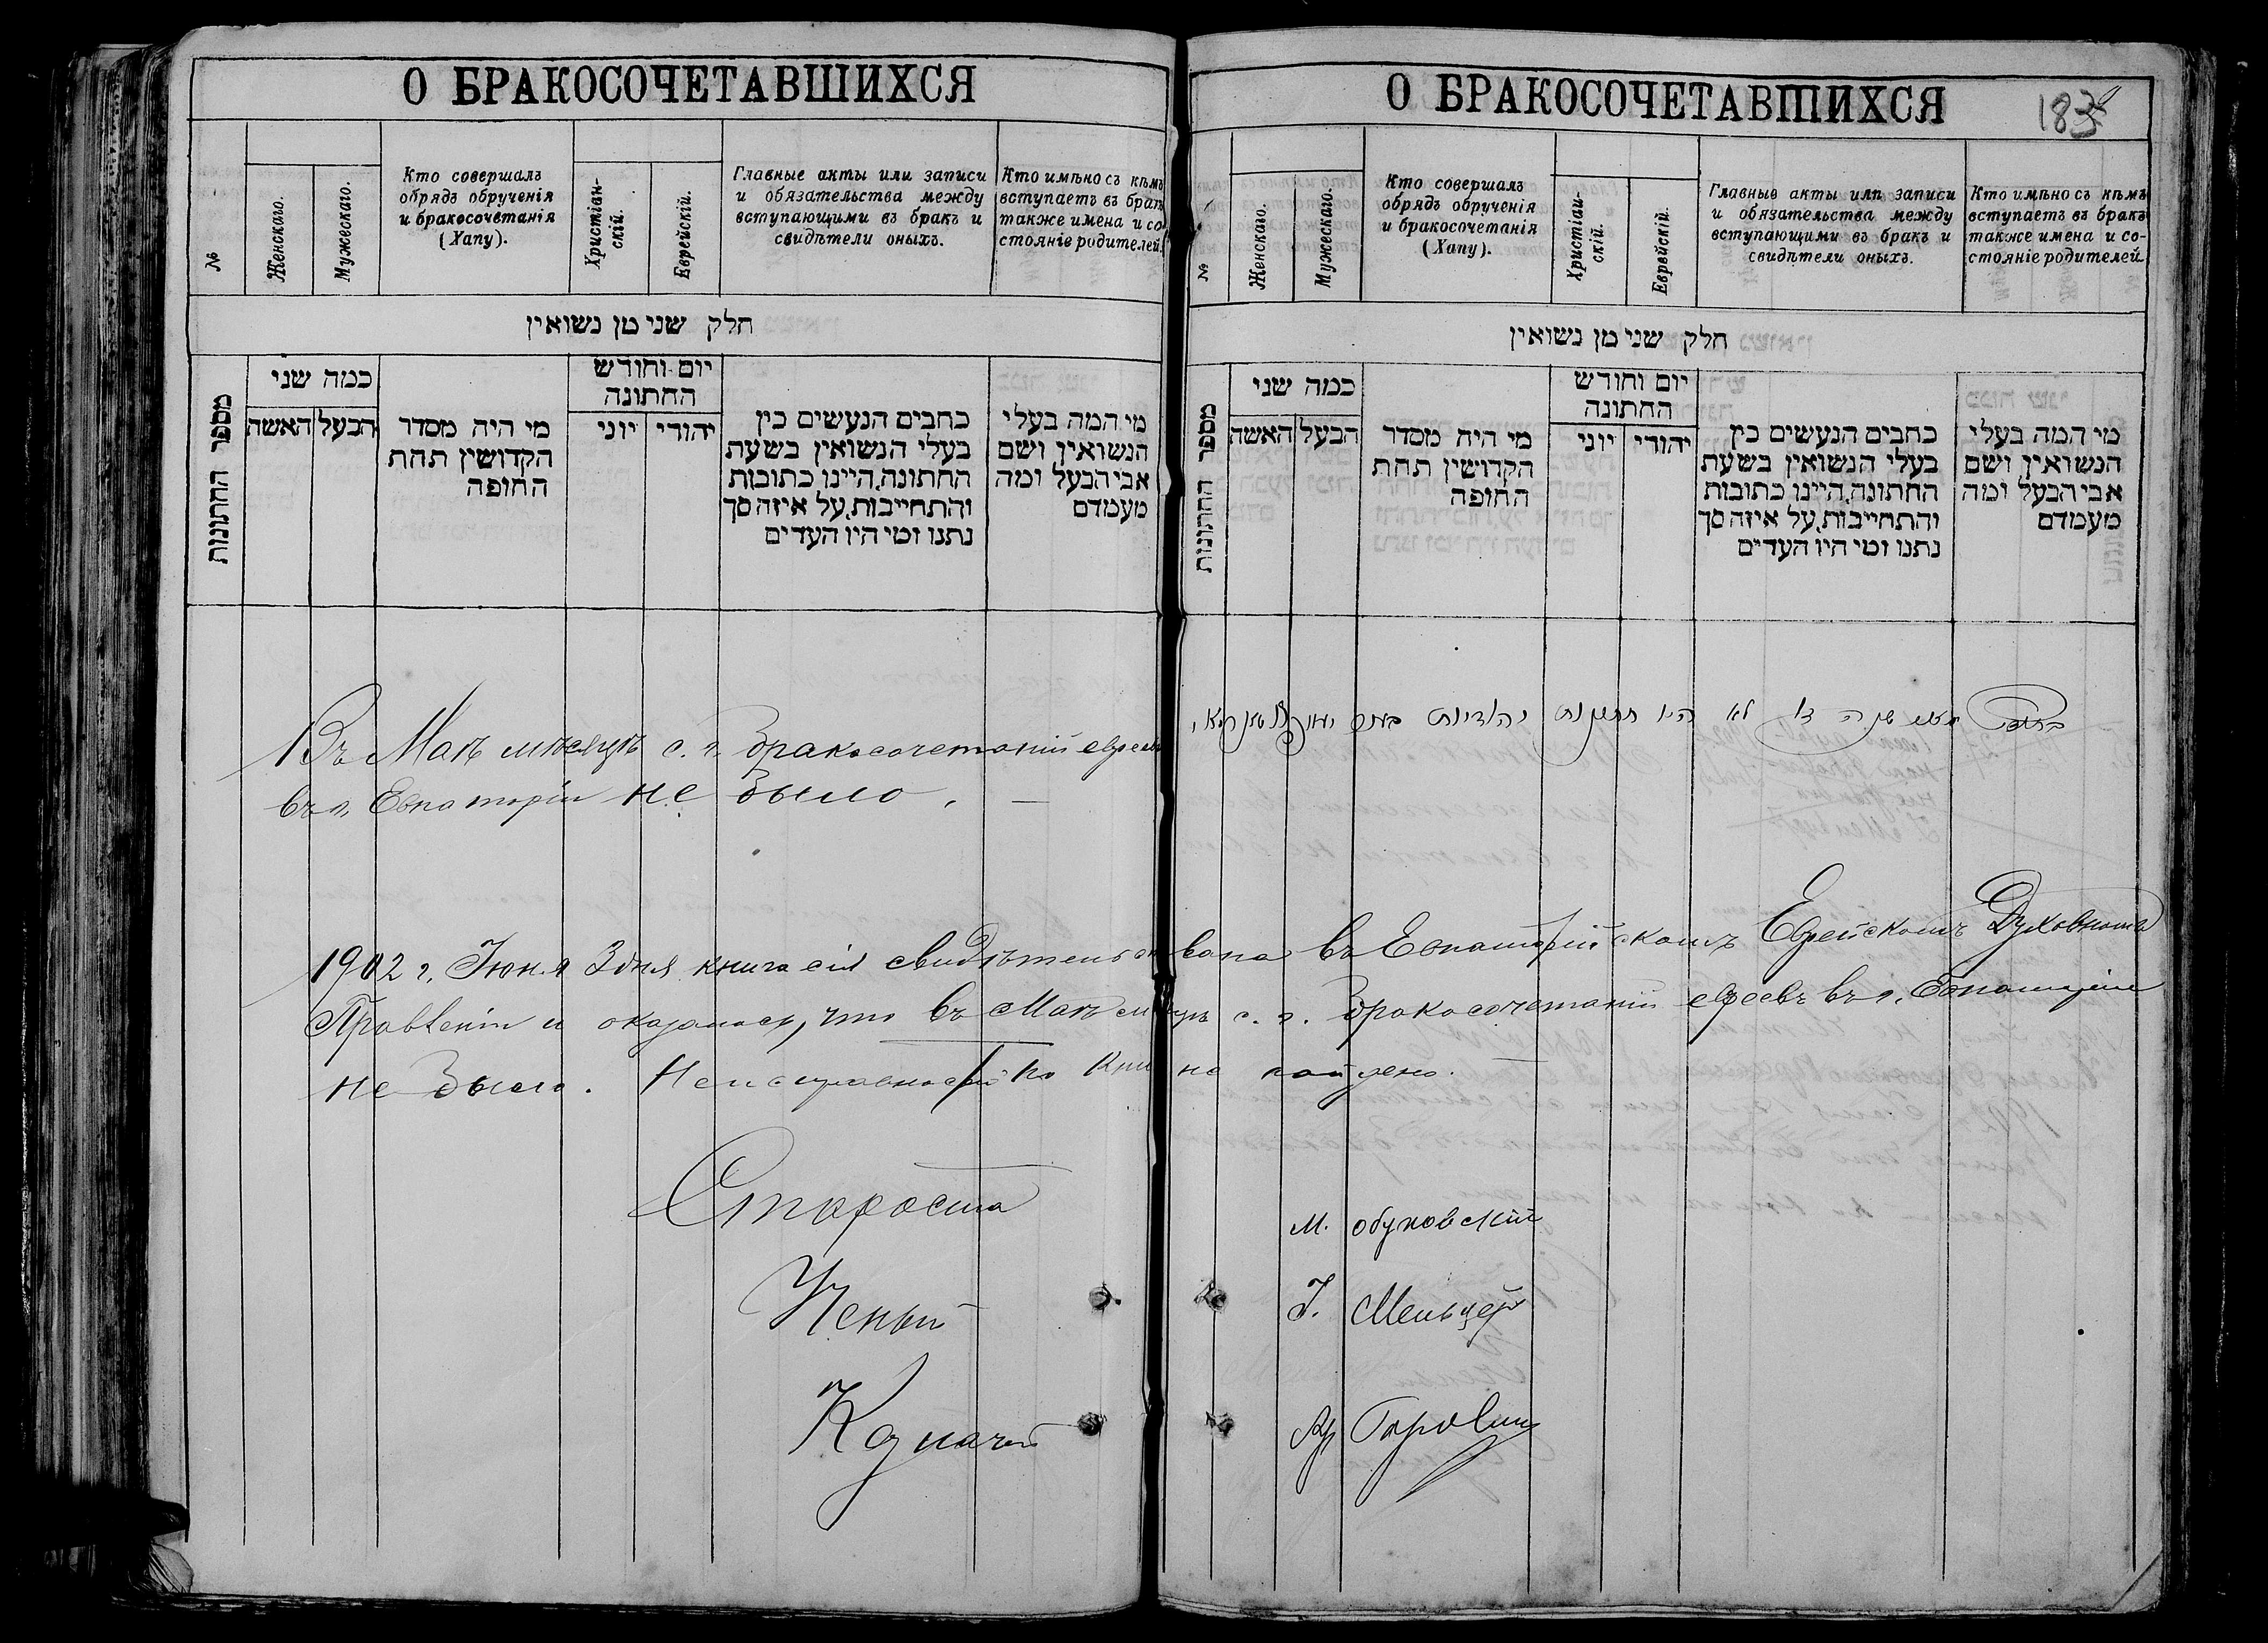 О БРАКОСОЧЕТАВШИХСЯ
№
Женскаго.
Мужескаго.
Кто совершалъ
обрядъ обрученія
и бракосочетанія
(Хапу).
Христіан-
скій.
Еврейскій.
Главные акты или записи
и обязательства между
вступающими въ бракъ и
свидѣтели оныхъ.
Кто имѣно съ кѣмъ
вступаетъ въ бракъ
также имена и со-
стояніе родителей.
חלק שני מן נשואין
מספר החתונות
כמה שני
האשה
הבעל
מי היה מסדר
הקדושין תחת
החופה
יום וחודש
החתונה
יוני
יהודי
כתבים הנעשים בין
בעלי הנשואין בשעת
החתונה, היינו כתובות
והתחייבות, על איזה סך
נתנו ומי היו העדים
מי המה בעלי
הנשואין ושם
אבי הבעל ומה
מעמדם
Въ Маѣ мѣсяцѣ с. г. бракосочетаній евреевъ
въ г. Евпаторіи не было. —
О БРАКОСОЧЕТАВШИХСЯ
183
№
Женскаго.
Мужескаго.
Кто совершалъ
обрядъ обрученія
и бракосочетанія
(Хапу).
Христіан-
скій.
Еврейскій.
Главные акты или записи
и обязательства между
вступающими въ бракъ и
свидѣтели оныхъ.
Кто имѣно съ кѣмъ
вступаетъ въ бракъ
также имена и со-
стояніе родителей
חלק שני מן נשואין
מספר החתונות
כמה שני
האשה
הבעל
מי היה מסדר
הקדושין תחת
החופה
יום וחודש
החתונה
יוני
יהודי
כתבים הנעשים בין
בעלי הנשואין בשעת
החתונה, היינו כתובות
והתחייבות, על איזה סך
נתנו ומי היו העדים
מי המה בעלי
הנשואין ושם
אבי הבעל ומה
מעמדם
לא היו חתונות יהודיות
1902 г. Іюня 3 дня книга сія свидѣтельствована въ Евпаторійскомъ Еврейскомъ Духовномъ
Правленіи и оказалось, что въ Маѣ мѣсяцѣ с. г. бракосочетаній евреевъ въ г. Евпаторіи
не было. Неисправностей по книгѣ не найдено.
Староста М. Обуховскій
Ученый І. Мельцеръ
Казначей Гаровиц